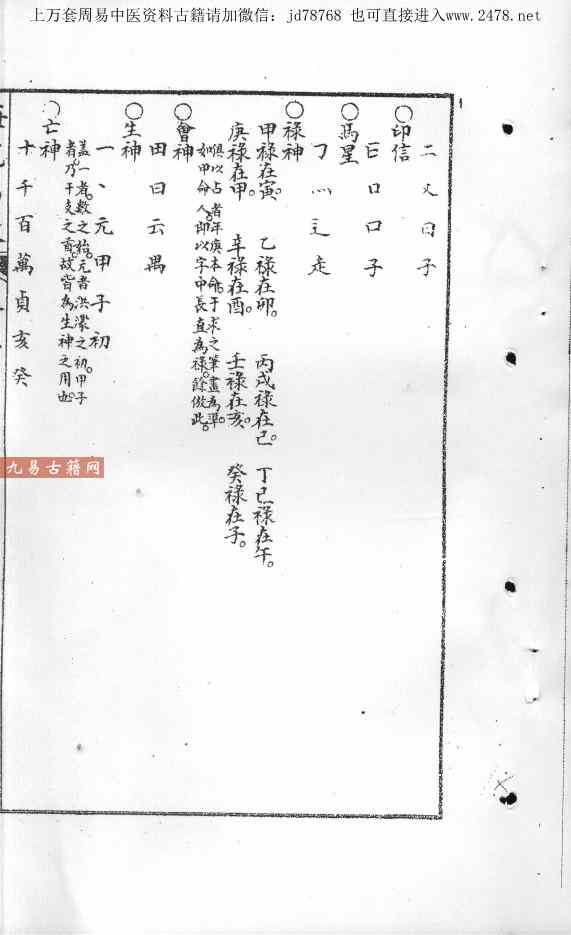 上万套周易中医资料古籍请加微信: jd78768 也可直接进入www.2478.net
二乂曰子
○印信
㠪口口子
○馬星
灬辶走
○祿神
甲祿在寅。 乙祿在卯。 丙戊祿在巳。 丁己祿在午。
庚祿在甲。 辛祿在酉。 壬祿在亥。 癸祿在子。
俱以占者年庚本命。干求之筆畫為準。
如甲命人。即以字中長直為祿。餘倣此。
○會神
田日云禺
○生神
一丶元甲子初
盖一者。數之始。元者洪濛之初。甲子
者。乃干支之首。故皆為生神之用也。
○亡神
十千百萬貞亥癸
九易古籍网